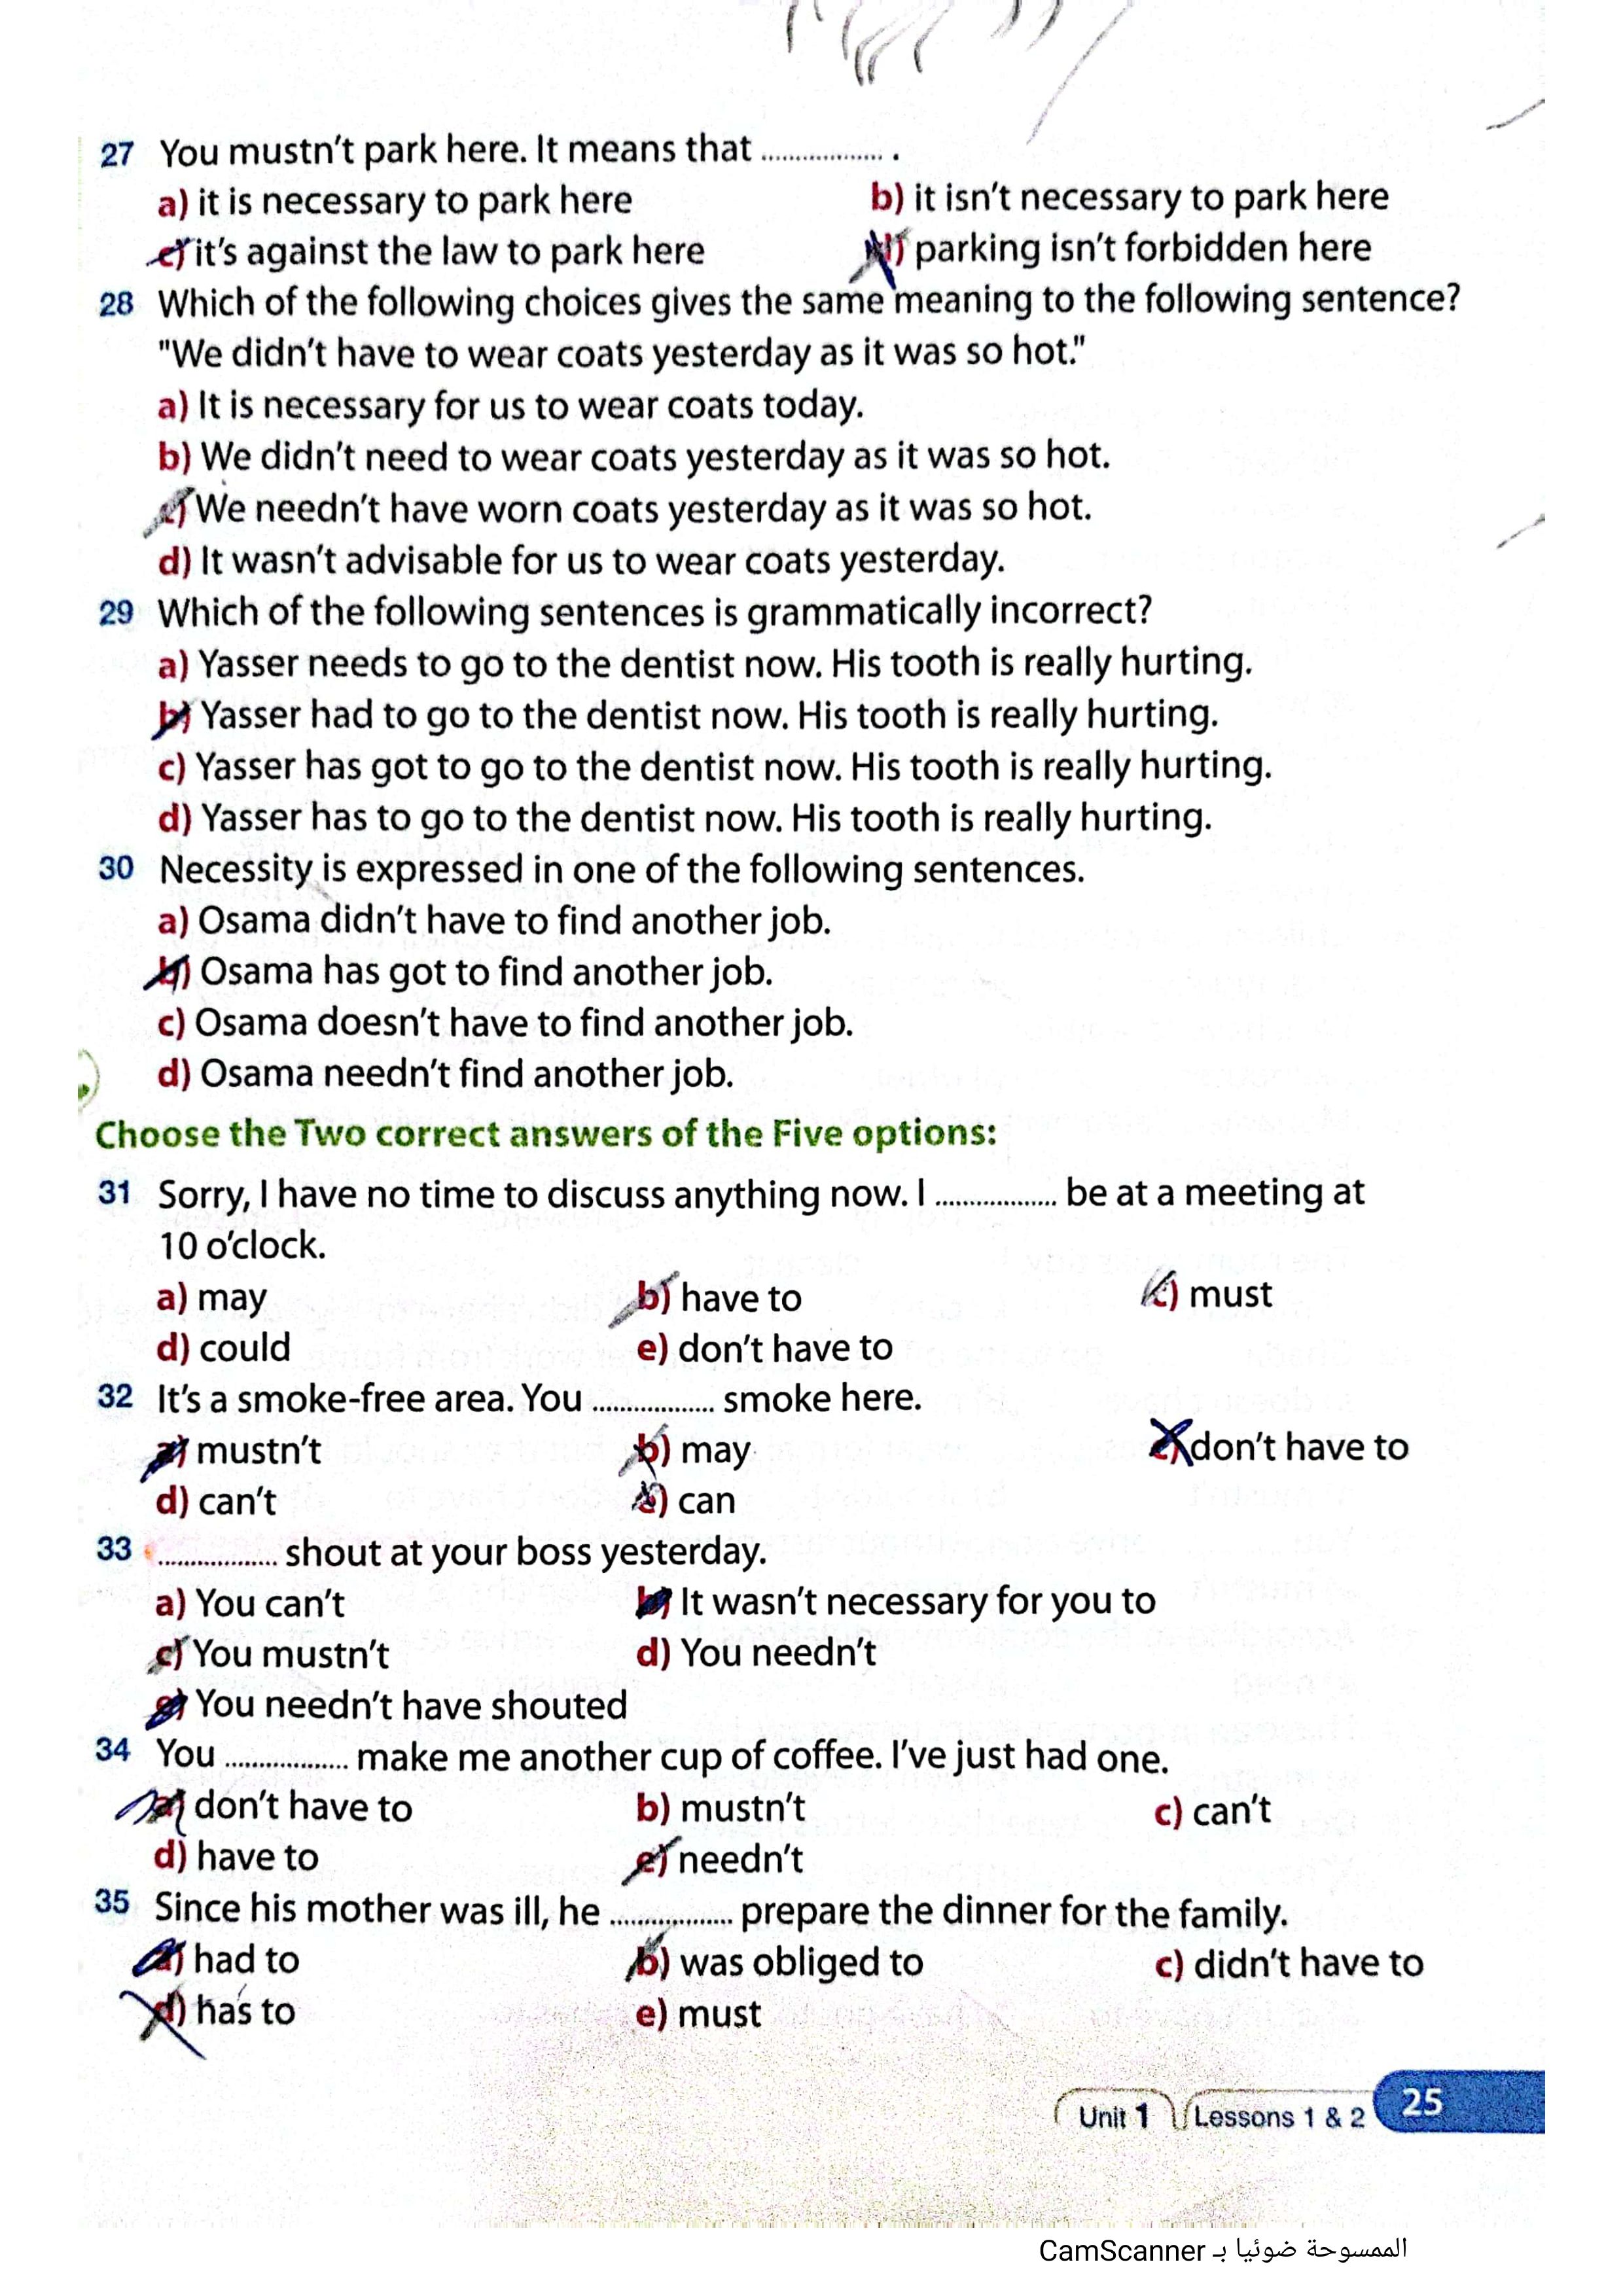 27 You mustn't park here. It means that .................. .
a) it is necessary to park here b) it isn't necessary to park here
c) it's against the law to park here d) parking isn't forbidden here
28 Which of the following choices gives the same meaning to the following sentence?
"We didn't have to wear coats yesterday as it was so hot."
a) It is necessary for us to wear coats today.
b) We didn't need to wear coats yesterday as it was so hot.
c) We needn't have worn coats yesterday as it was so hot.
d) It wasn't advisable for us to wear coats yesterday.
29 Which of the following sentences is grammatically incorrect?
a) Yasser needs to go to the dentist now. His tooth is really hurting.
b) Yasser had to go to the dentist now. His tooth is really hurting.
c) Yasser has got to go to the dentist now. His tooth is really hurting.
d) Yasser has to go to the dentist now. His tooth is really hurting.
30 Necessity is expressed in one of the following sentences.
a) Osama didn't have to find another job.
b) Osama has got to find another job.
c) Osama doesn't have to find another job.
d) Osama needn't find another job.
Choose the Two correct answers of the Five options:
31 Sorry, I have no time to discuss anything now. I .................. be at a meeting at
10 o'clock.
a) may b) have to c) must
d) could e) don't have to
32 It's a smoke-free area. You .................. smoke here.
a) mustn't b) may c) don't have to
d) can't e) can
33 .................. shout at your boss yesterday.
a) You can't b) It wasn't necessary for you to
c) You mustn't d) You needn't
e) You needn't have shouted
34 You .................. make me another cup of coffee. I've just had one.
a) don't have to b) mustn't c) can't
d) have to e) needn't
35 Since his mother was ill, he .................. prepare the dinner for the family.
a) had to b) was obliged to c) didn't have to
d) has to e) must
Unit 1 Lessons 1 & 2 25
الممسوحة ضوئيا بـ CamScanner